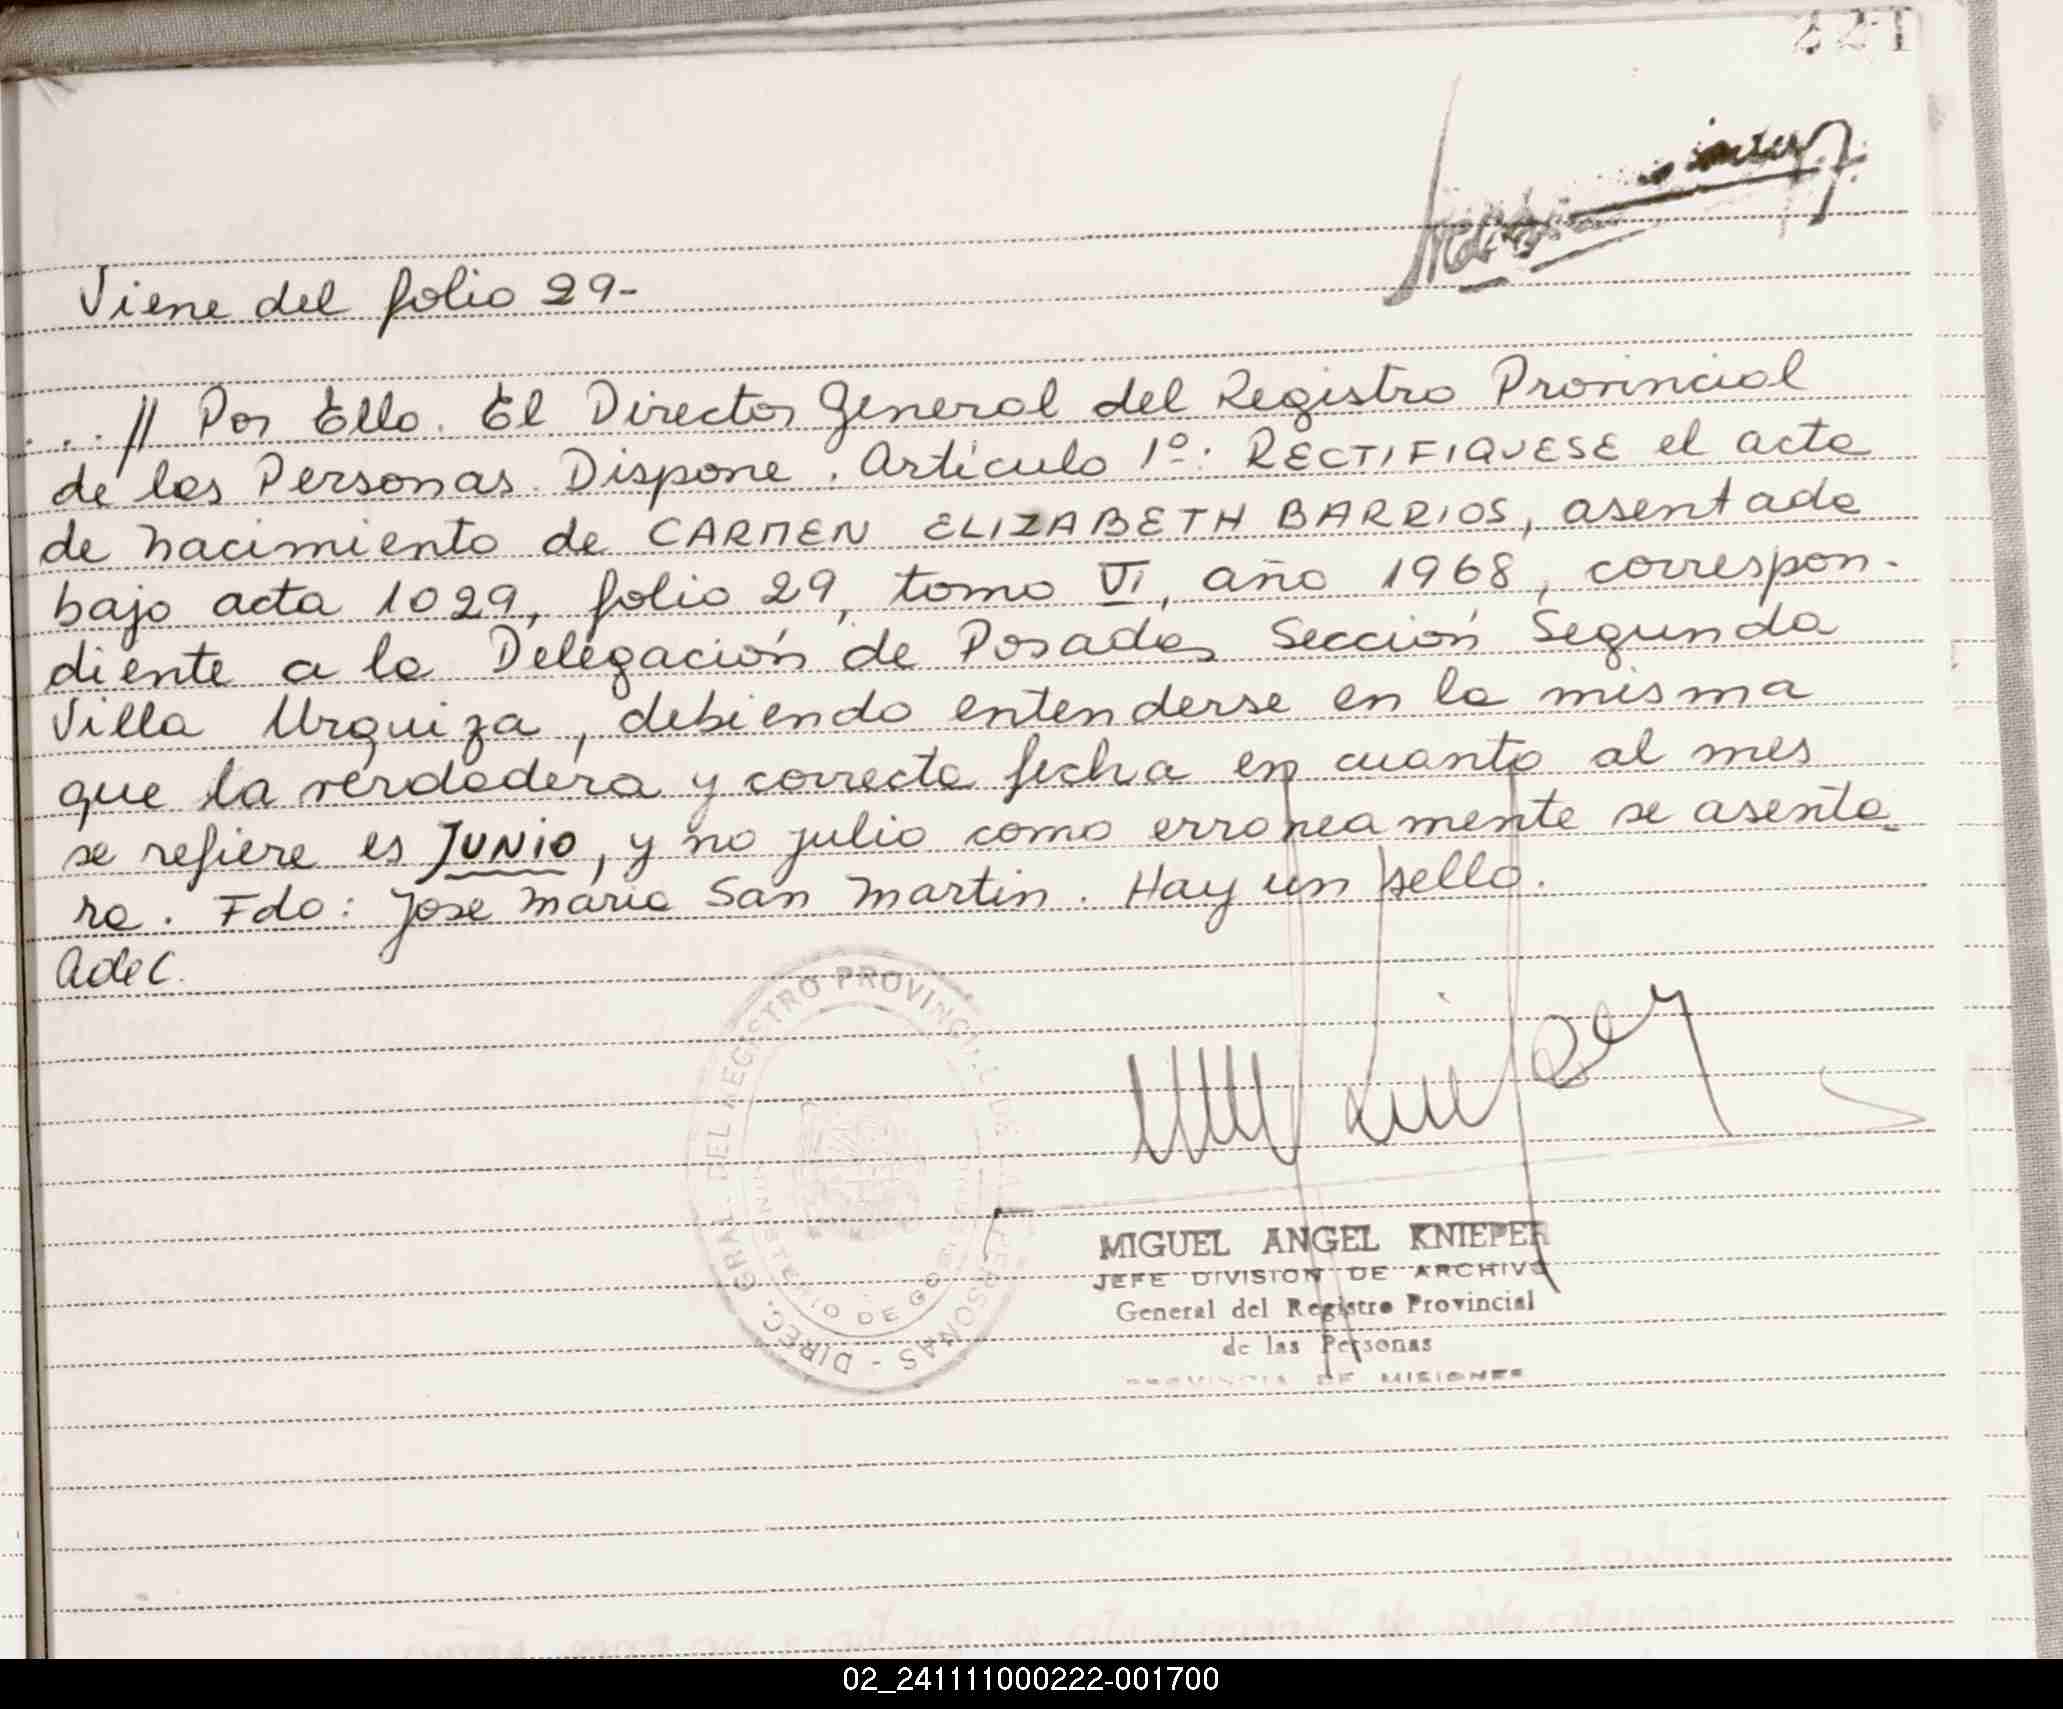 221
Viene del folio 29-
...// Por Ello. El Director General del Registro Provincial
de las Personas. Dispone. Artículo 1º: RECTIFIQUESE el acta
de nacimiento de CARMEN ELIZABETH BARRIOS, asentada
bajo acta 1029, folio 29, tomo VI, año 1968, correspon-
diente a la Delegación de Posadas Sección Segunda
Villa Urquiza, debiendo entenderse en la misma
que la verdadera y correcta fecha en cuanto al mes
se refiere es JUNIO, y no julio como erroneamente se asenta-
ra. Fdo: Jose Maria San Martin. Hay un sello.
AdeC.
DIREC. GRAL. DEL REGISTRO PROVINCIAL DE LAS PERSONAS -
MINISTERIO DE GOBIERNO
MIGUEL ANGEL KNIEPER
JEFE DIVISION DE ARCHIVO
General del Registro Provincial
de las Personas
PROVINCIA DE MISIONES
02_241111000222-001700